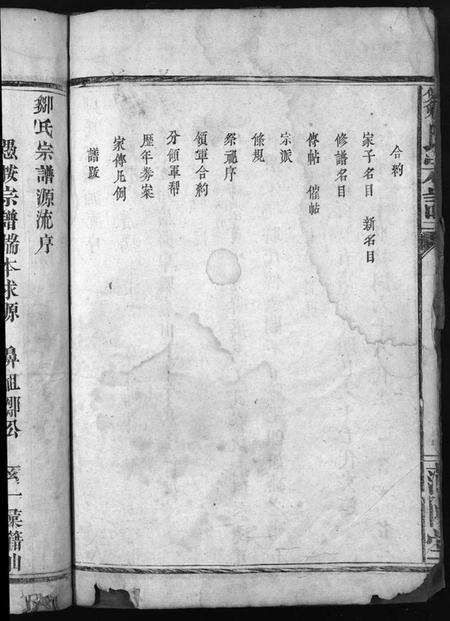 合約
家子名目 新名目
修譜名目
傳帖 催帖
宗派
條規
祭祀序
領軍合約
分領軍帮
歷年券案
家傳凡例
譜跋
鄒氏宗譜源流序
愚嵗宗譜端本求源 鼻祖鄒公